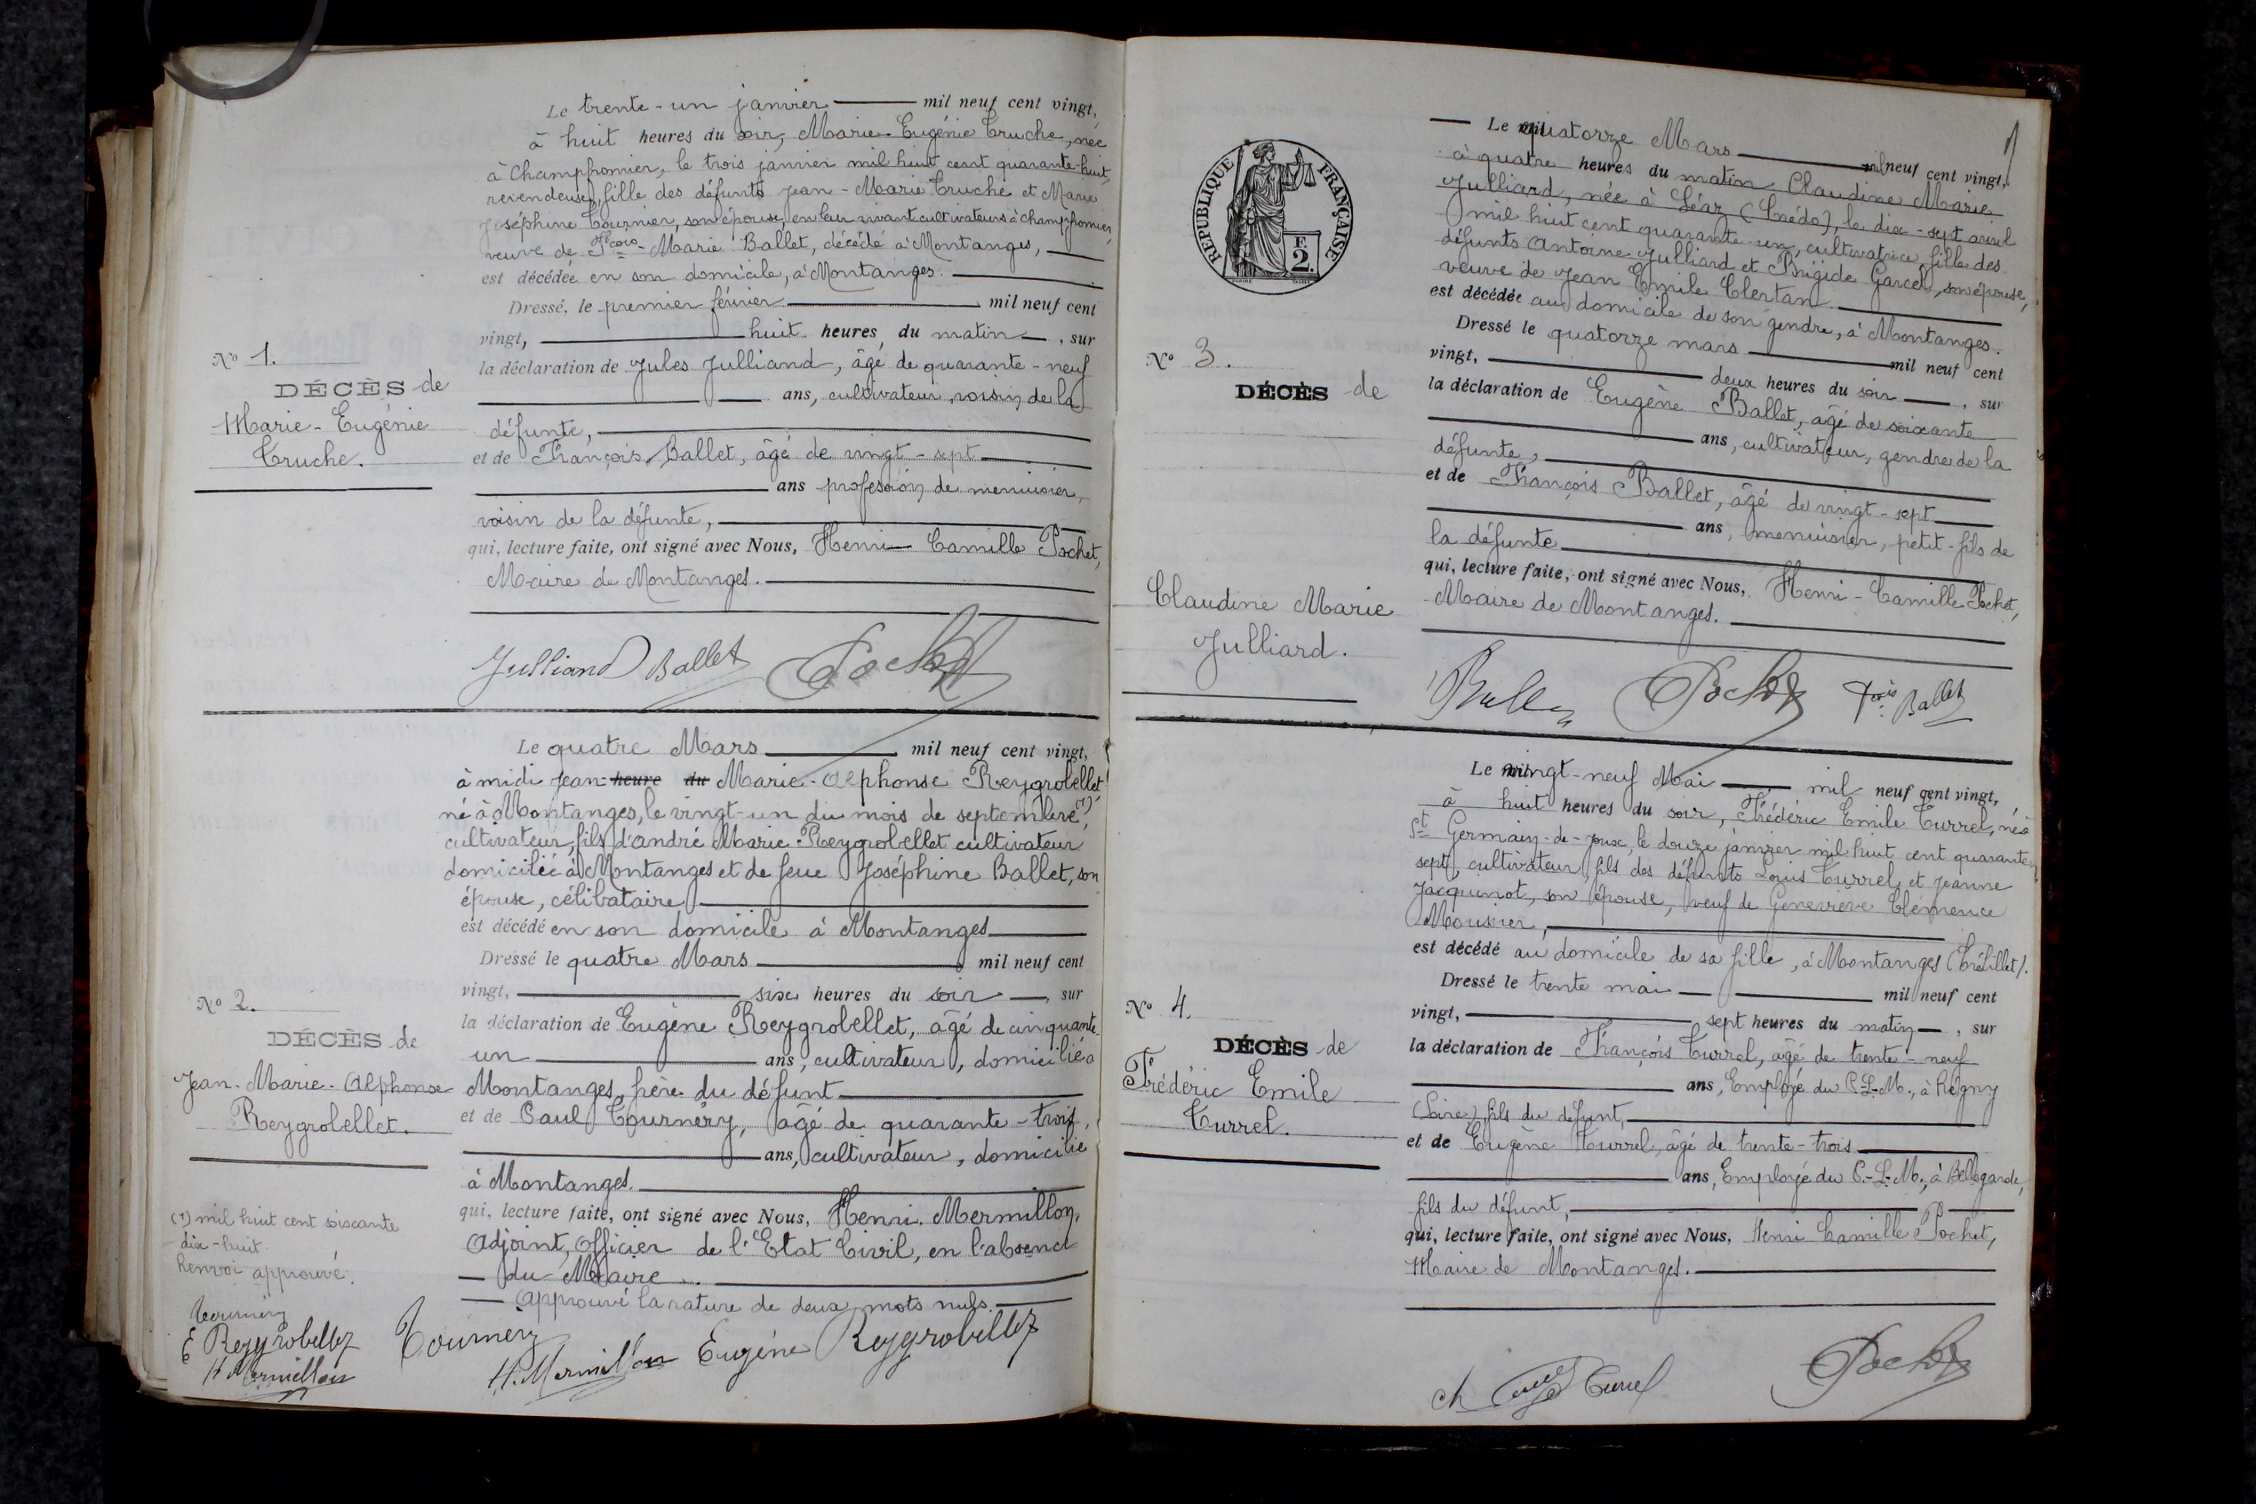 Le trente-un janvier mil neuf cent vingt,
à huit heures du soir, Marie-Eugénie Truche, née
à Champfromier, le trois janvier mil huit cent quarante-huit,
revendeuse, fille des défunts Jean-Marie Truche et Marie
Joséphine Tournier, son épouse, en leur vivant cultivateurs à Champfromier,
veuve de Fcois-Marie Ballet, décédé à Montanges,
est décédée en son domicile, à Montanges.
Dressé, le premier février mil neuf cent
vingt, huit heures du matin, sur
la déclaration de Jules Julliand, âgé de quarante-neuf
ans, cultivateur, voisin de la
défunte,
et de François Ballet, âgé de vingt-sept
ans profession de menuisier,
voisin de la défunte,
qui, lecture faite, ont signé avec Nous, Henri Camille Pochet,
Maire de Montanges.
No 1.
DÉCÈS de
Marie-Eugénie
Truche.
Julliand Ballet Pochet
Le quatre Mars mil neuf cent vingt,
à midi Jean heure du Marie-Alphonse Reygrobellet
né à Montanges, le vingt-un du mois de septembre (1),
cultivateur, fils d'André Marie Reygrobellet cultivateur
domicilié à Montanges et de feue Joséphine Ballet, son
épouse, célibataire
est décédé en son domicile à Montanges
Dressé le quatre Mars mil neuf cent
vingt, six heures du soir, sur
la déclaration de Eugène Reygrobellet, âgé de cinquante
un ans, cultivateur, domicilié à
Montanges, frère du défunt
et de Paul Tournéry, âgé de quarante-trois,
ans, cultivateur, domicilié
à Montanges.
qui, lecture faite, ont signé avec Nous, Henri Mermillon,
Adjoint, Officier de l'Etat Civil, en l'absence
du Maire.
Approuvé la rature de deux mots nuls.
No 2.
DÉCÈS de
Jean-Marie-Alphonse
Reygrobellet.
(1) mil huit cent soixante
dix-huit.
Renvoi approuvé.
Tournéry
E Reygrobellet
H Mermillon
Tournéry
H. Mermillon Eugène Reygrobellet
1
RÉPUBLIQUE FRANÇAISE
F.
2.
Le quatorze Mars mil neuf cent vingt,
à quatre heures du matin Claudine Marie
Julliard, née à Léaz (Crédo), le dix-sept avril
mil huit cent quarante-un, cultivatrice, fille des
défunts Antoine Julliard et Brigide Garcel, son épouse,
veuve de Jean Emile Clertan
est décédée au domicile de son gendre, à Montanges.
Dressé le quatorze mars mil neuf cent
vingt, deux heures du soir, sur
la déclaration de Eugène Ballet, âgé de soixante
ans, cultivateur, gendre de la
défunte,
et de François Ballet, âgé de vingt-sept
ans, menuisier, petit-fils de
la défunte
qui, lecture faite, ont signé avec Nous, Henri-Camille Pochet,
Maire de Montanges.
No 3.
DÉCÈS de
Claudine Marie
Julliard.
Ballet Pochet Fcois Ballet
Le vingt-neuf Mai mil neuf cent vingt,
à huit heures du soir, Frédéric Emile Turrel, né à
St Germain-de-Joux, le douze janvier mil huit cent quarante
sept, cultivateur, fils des défunts Louis Turrel et Jeanne
Jacquinot, son épouse, veuf de Geneviève Clémence
Mousier,
est décédé au domicile de sa fille, à Montanges (Trébillet).
Dressé le trente mai mil neuf cent
vingt, sept heures du matin, sur
la déclaration de François Turrel, âgé de trente-neuf
ans, Employé du P.-L.-M., à Régny
(Loire), fils du défunt,
et de Eugène Turrel, âgé de trente-trois
ans, Employé du P.-L.-M., à Bellegarde,
fils du défunt,
qui, lecture faite, ont signé avec Nous, Henri Camille Pochet,
Maire de Montanges.
No 4.
DÉCÈS de
Frédéric Emile
Turrel.
Turrel Pochet